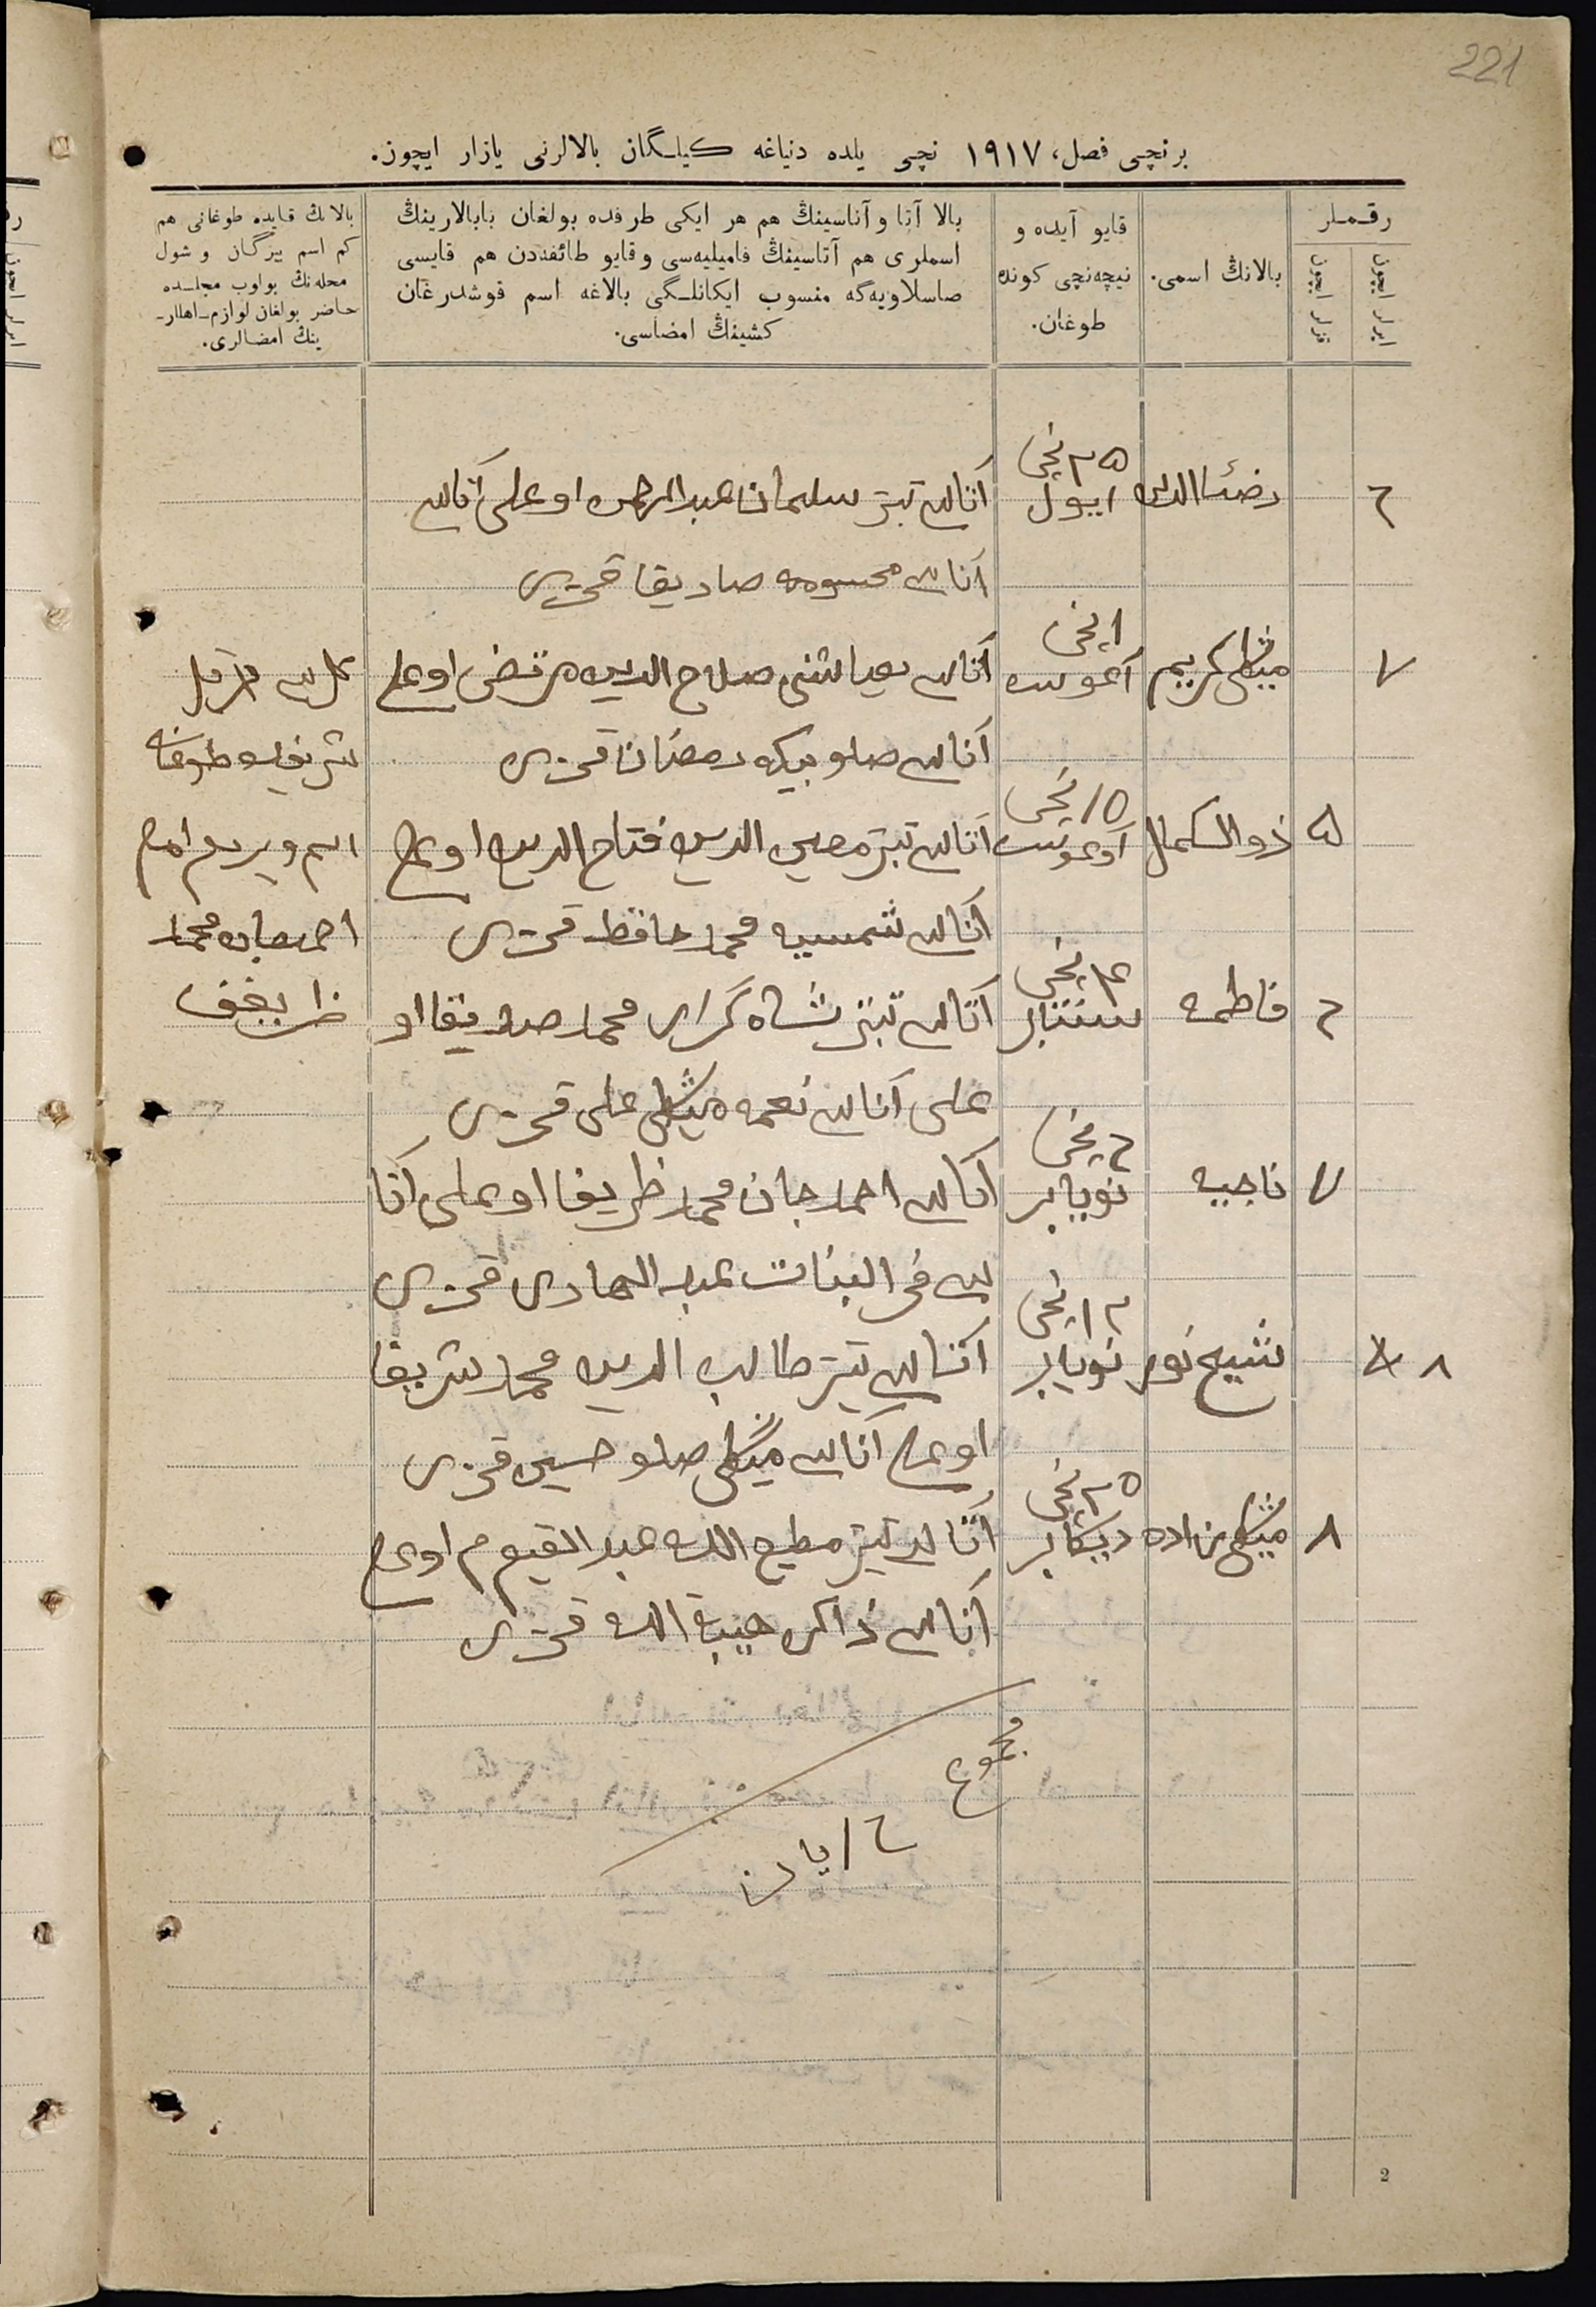 221
برنچی فصل، ١٩١٧ نچی یلده دنیاغه کیلـگان بالالرنی یازار ایچون.
رقـملر
ایرلر ایچون
قزلر ایچون
بالانڭ اسمی.
قایو آیده و
نیچه‌نچی کونده
طوغان.
بالا آتا و آناسینڭ هم هر ایکی طرفده بولغان بابالارینڭ
اسملری هم آتاسینڭ فامیلیه‌سی و قایو طائفه‌دن هم قایسی
صاسلاویه‌گه منسوب ایکانلـگی بالاغه اسم قوشدرغان
کشینڭ امضاسی.
بالانڭ قایده طوغانی هم
کم اسم بیرگان و شول
محله‌نڭ بولوب مجلـسده
حاضر بولغان لوازم-اهللر-
ینڭ امضالری.
٦
٢٥ نچی
ایول
آتاسی تبتر سلیمان عبدالرحمن اوغلی آناسی
آناسی محسومه صادیقا قزی
٧
مینکلی کریم
١ نچی
آغوست
آتاسی صلاح الدین مرتضی اوغلی
آناسی صلو بیکه رمضان قزی
٥
ذوالکمال
١٥ نچی
آوغوست
آتاسی تبتر محیی الدین فتاح الدین اوغلی
آناسی شمسیه محمد حافظ قزی
اسم ویردم امام
احمدجان محمد
ظریفف
٦
فاطمه
سنتابر
آتاسی تبتر شاه گرای محمد صدیقا او
غلی آناسی نعمه مینکلی علی قزی
٧
ناجیه
٦ نچی
نویابر
آتاسی احمد جان محمد ظریفا اوغلی آنا
سی فخر البنات عبد الهادی قزی
٨
شیخ نور
١٢ نچی
نویابر
آتاسی تبتر طالب الدین محمد شریفا
اوغلی آناسی مینکلی صلو حسین قزی
٨
مینکلی زاده
٢٥ نچی
دیکابر
آتاسی تبتر مطیع الله عبد القیوم اوغلی
آناسی ذاکره هیبة الله قزی
مجموع
١٦
2